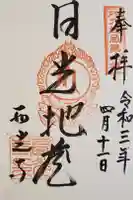 奉拝
令和三年
四月十一日
日光地蔵
西光寺